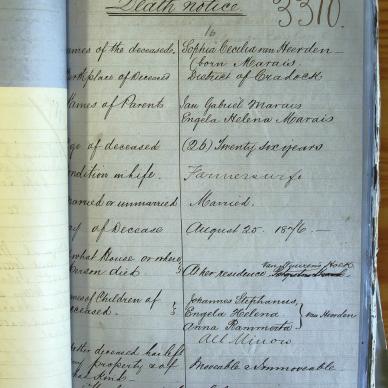 Death notice 3310.
16
ames of the deceased, Sophia Cecilia van Heerden —
(born Marais)
place of Deceased District of Cradock
Names of Parents Jan Gabriel Marais
Engela Helena Marais
ge of deceased (26) Twenty six years
ondition in life. Farmerswife
arried or unmarried Married.
y of Decease August 25. 1876 —
what House or where
erson died At her residence van
mes of Children of Johannes Stephanus,
ceased. Engela Helena van Heerden
Anna
All Minors
ther deceased has left
property & of Moveable & Immoveable
kind